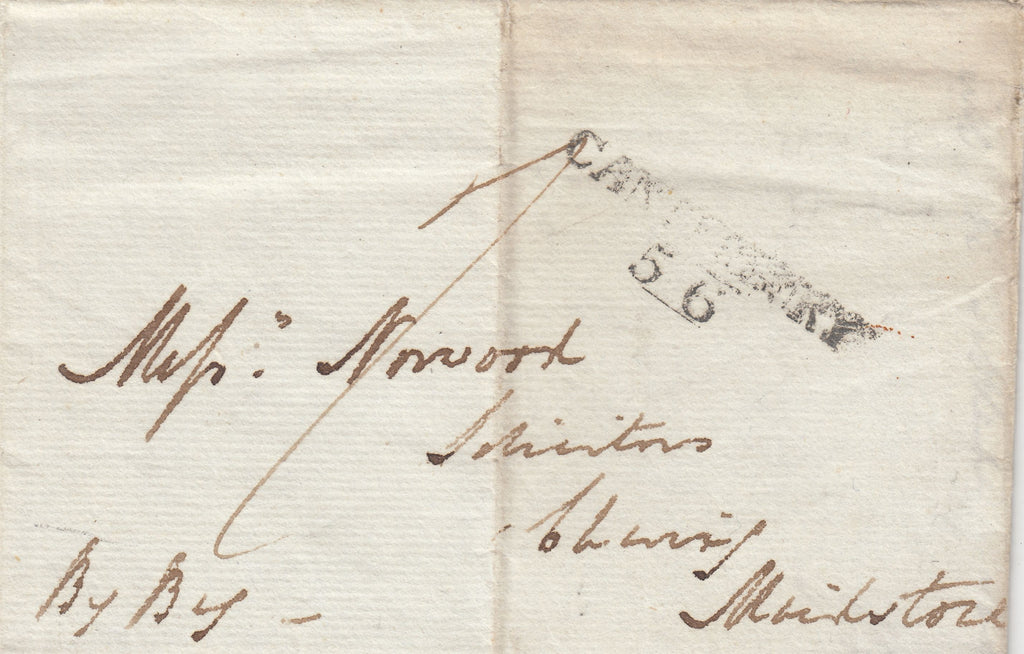 CANTERBURY
56
7
Messrs. Norwood
Solicitors
Charing
Maidstone
By Bag -